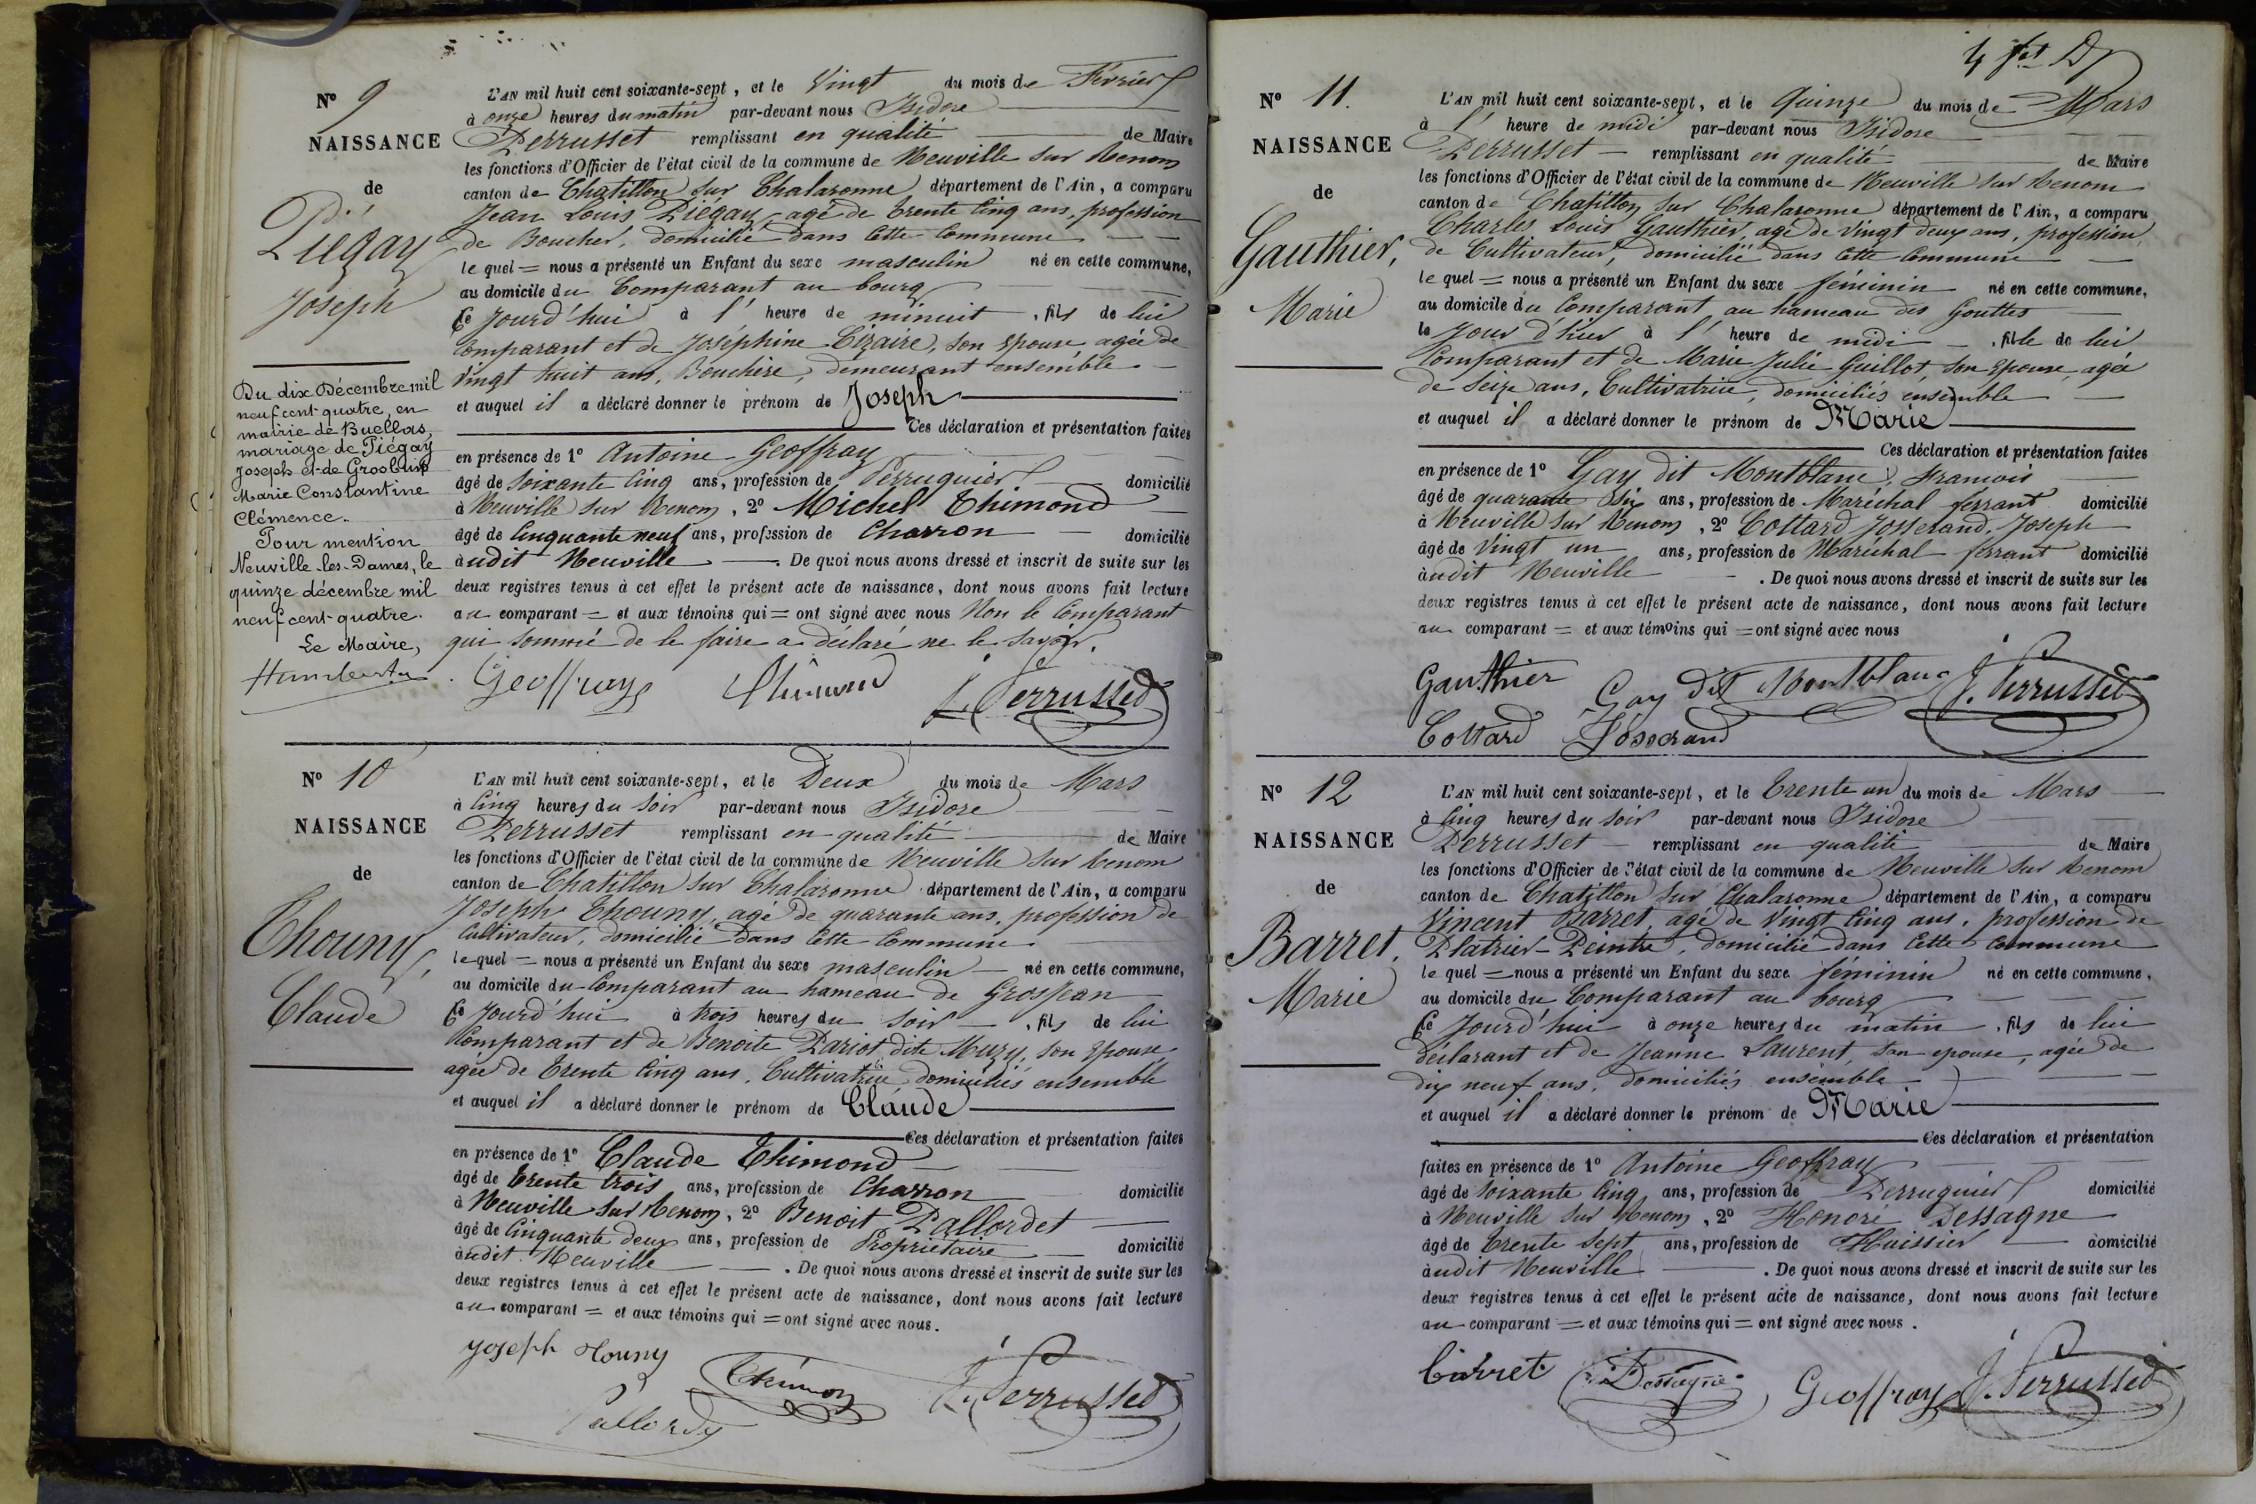 N° 9
NAISSANCE
de
Piégay
Joseph
Du dix Décembre mil
neuf cent quatre, en
mairie de Buellas,
mariage de Piégay
Joseph et de Grosbuis
Marie Constantine
Clémence.
Pour mention
Neuville-les-Dames, le
quinze décembre mil
neuf cent quatre.
Le Maire,
L'AN mil huit cent soixante-sept, et le Vingt du mois de Février
à onze heures du matin par-devant nous Isidore
Perrusset remplissant en qualité de Maire
les fonctions d'Officier de l'état civil de la commune de Neuville sur Renom
canton de Chatillon sur Chalaronne département de l'Ain, a comparu
Jean Louis Piégay, agé de trente cinq ans, profession
de Boucher, domicilié dans cette commune
le quel = nous a présenté un Enfant du sexe masculin né en cette commune,
au domicile du Comparant au bourg
Ce jourd'hui à l' heure de minuit, fils de lui
Comparant et de Joséphine Cizaire, son épouse, agée de
Vingt huit ans, Bouchère, demeurant ensemble
et auquel il a déclaré donner le prénom de Joseph
Ces déclaration et présentation faites
en présence de 1° Antoine Geoffray
âgé de soixante cinq ans, profession de Perruquier domicilié
à Neuville sur Renom, 2° Michel Thimond
âgé de Cinquante neuf ans, profession de Charron domicilié
àudit Neuville. De quoi nous avons dressé et inscrit de suite sur les
deux registres tenus à cet effet le présent acte de naissance, dont nous avons fait lecture
au comparant = et aux témoins qui = ont signé avec nous Non le Comparant
qui sommé de le faire a déclaré ne le savoir.
Geoffray Thimond J. Perrusset
N° 10
NAISSANCE
de
Thouny,
Claude
L'AN mil huit cent soixante-sept, et le Deux du mois de Mars
à Cinq heures du soir par-devant nous Isidore
Perrusset remplissant en qualité de Maire
les fonctions d'Officier de l'état civil de la commune de Neuville sur Renom
canton de Chatillon sur Chalaronne département de l'Ain, a comparu
Joseph Thouny, agé de quarante ans, profession de
Cultivateur, domicilié dans cette commune
le quel = nous a présenté un Enfant du sexe masculin né en cette commune,
au domicile du Comparant au hameau de Grosjean
Ce jourd'hui à trois heures du soir, fils de lui
Comparant et de Benoite Pariot dite Muzy, son épouse
agée de trente cinq ans, Cultivatrice, domiciliés ensemble
et auquel il a déclaré donner le prénom de Claude
Ces déclaration et présentation faites
en présence de 1° Claude Thimond
âgé de trente trois ans, profession de Charron domicilié
à Neuville sur Renom, 2° Benoit Pallordet
âgé de Cinquante deux ans, profession de Propriétaire domicilié
àudit Neuville. De quoi nous avons dressé et inscrit de suite sur les
deux registres tenus à cet effet le présent acte de naissance, dont nous avons fait lecture
au comparant = et aux témoins qui = ont signé avec nous.
Joseph Touny Thimon J. Perrusset
4 fet
N° 11.
NAISSANCE
de
Gauthier,
Marie
L'AN mil huit cent soixante-sept, et le Quinze du mois de Mars
à l' heure de midi par-devant nous Isidore
Perrusset remplissant en qualité de Maire
les fonctions d'Officier de l'état civil de la commune de Neuville sur Renom
canton de Chatillon sur Chalaronne département de l'Ain, a comparu
Charles Louis Gauthier, agé de vingt deux ans, profession
de Cultivateur, domicilié dans cette commune
le quel = nous a présenté un Enfant du sexe féminin né en cette commune,
au domicile du Comparant au hameau des Gouttes
le Jour d'hier à l' heure de midi, fille de lui
Comparant et de Marie Julie Guillot, son épouse, agée
de seize ans, Cultivatrice, domiciliés ensemble
et auquel il a déclaré donner le prénom de Marie
Ces déclaration et présentation faites
en présence de 1° Gay dit Montblanc, François
âgé de quarante six ans, profession de Maréchal ferrant domicilié
à Neuville sur Renom, 2° Cottard Josserand, Joseph
âgé de Vingt un ans, profession de Maréchal ferrant domicilié
àudit Neuville. De quoi nous avons dressé et inscrit de suite sur les
deux registres tenus à cet effet le présent acte de naissance, dont nous avons fait lecture
au comparant = et aux témoins qui = ont signé avec nous
Gauthier Gay dit Montblanc J. Perrusset
Cottard Josserand
N° 12
NAISSANCE
de
Barret,
Marie
L'AN mil huit cent soixante-sept, et le trente un du mois de Mars
à Cinq heures du soir par-devant nous Isidore
Perrusset remplissant en qualité de Maire
les fonctions d'Officier de l'état civil de la commune de Neuville sur Renom
canton de Chatillon sur Chalaronne département de l'Ain, a comparu
Vincent Barret, agé de vingt cinq ans, profession de
Platrier-Peintre, domicilié dans cette commune
le quel = nous a présenté un Enfant du sexe féminin né en cette commune,
au domicile du Comparant au bourg
Ce jourd'hui à onze heures du matin, fils de lui
déclarant et de Jeanne Laurent, son épouse, agée de
dix neuf ans, domiciliés ensemble
et auquel il a déclaré donner le prénom de Marie
Ces déclaration et présentation
faites en présence de 1° Antoine Geoffray
âgé de soixante cinq ans, profession de Perruquier domicilié
à Neuville sur Renom, 2° Honoré Dessagne
âgé de trente sept ans, profession de Huissier domicilié
àudit Neuville. De quoi nous avons dressé et inscrit de suite sur les
deux registres tenus à cet effet le présent acte de naissance, dont nous avons fait lecture
au comparant = et aux témoins qui = ont signé avec nous.
Barret Dessagne Geoffray J. Perrusset